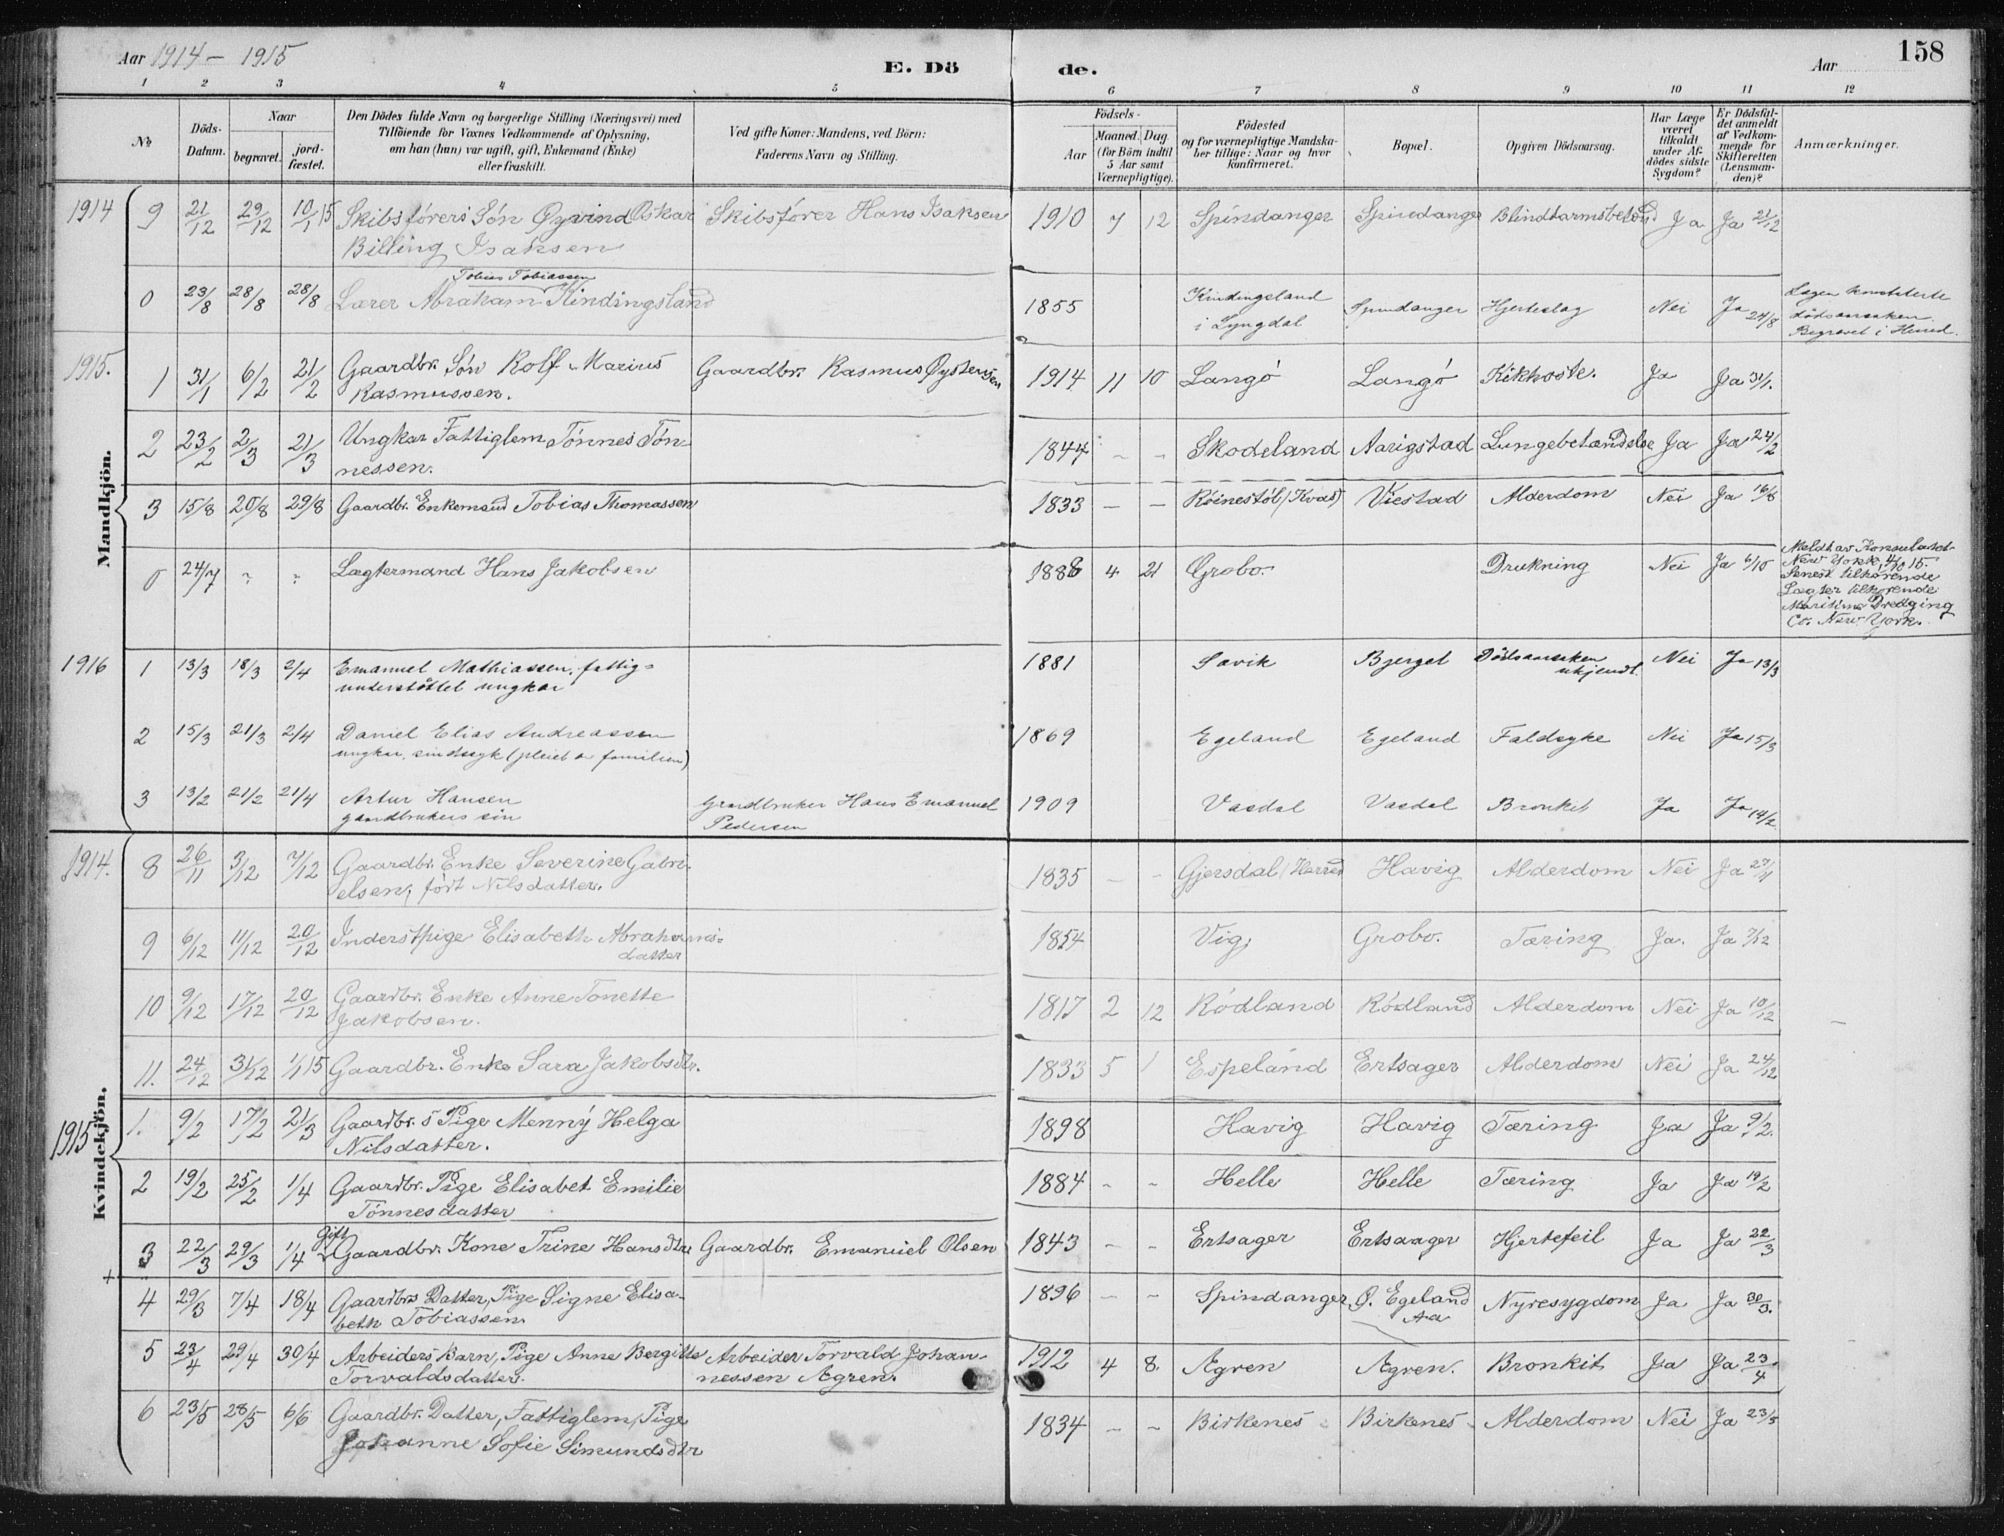 Aar 1914 – 1915
E. Dö
de.
Aar
158
1 2 3 4 5 6 7 8 9 10 11 12
No
Döds-
Datum.
Naar
begravet.
jord-
fæstet.
Den Dödes fulde Navn og borgerlige Stilling (Næringsvei) med
Tilföiende for Voxnes Vedkommende af Oplysning,
om han (hun) var ugift, gift, Enkemand (Enke)
eller fraskilt.
Ved gifte Koner: Mandens, ved Börn:
Faderens Navn og Stilling.
Födsels-
Aar
Maaned. Dag.
(for Börn indtil
5 Aar samt
Værnepligtige).
Födested
og for værnepligtige Mandska-
ber tillige: Naar og hvor
konfirmeret.
Bopæl.
Opgiven Dödsaarsag.
Har Læge
været
tilkaldt
under Af-
dödes sidste
Sygdom?
Er Dödsfal-
det anmeldt
af Vedkom-
mende for
Skifteretten
(Lensman-
den)?
Anmærkninger.
Mandkjön.
1914 9 21/12 29/12 10/1 15 Skibsførers Søn Øyvind Oskar Skibsfører Hans Isaksen 1910 7 12 Spindanger Spindanger Blindtarmsbetænd Ja Ja 21/12
Billing Isaksen
Tobias Tobiassen
0 23/8 28/8 28/8 Lærer Abraham Kindingsland 1855 Kindingsland Spindanger Hjerteslag Nei Ja 24/8 Lægen konstaterte
i Lyngdal dødsaarsaken.
Begravet i Herred.
1915. 1 31/1 6/2 21/2 Gaardbr. Søn Rolf Marius Gaardbr. Rasmus Øystensen 1914 11 10 Langö Langö Kikhoste. Ja Ja 31/1.
Rasmussen.
2 23/2 2/3 21/3 Ungkar Fattiglem Tönnes Tön- 1844 – – Skodeland Aarigstad Lungebetændelse Ja Ja 24/2
nessen.
3 15/8 20/8 29/8 Gaardbr. Enkemand Tobias Thomassen 1833 – – Röinestöl (Kvas) Viestad Alderdom Nei Ja 16/8
0 24/7 " " Lægtermand Hans Jakobsen 1886 4 21 Grobo. Drukning Nei Ja 6/10 Meldt av Konsulatet
New York, 4/10 15.
Senest tilhørende
Lægter tilhørende
Maritime Dredging
Co. New York.
1916 1 13/3 18/3 2/4 Emanuel Mathiassen, fattig- 1881 Savik Bjerget Dödsaarsaken Nei Ja 13/3
understøttet ungkar ukjendt.
2 15/3 21/3 2/4 Daniel Elias Andreassen 1869 Egeland Egeland Faldsyke Nei Ja 15/3
ungkar, sindssyk (pleiet av familien)
3 13/2 21/2 21/4 Artur Hansen Grundbruker Hans Emanuel 1909 Vasdal Vasdal Bronkit Ja Ja 14/2
gaardbrukers søn Pedersen
Kvindekjön.
1914. 8 26/11 3/12 7/12 Gaardbr. Enke Severine Gabri- 1835 – – Gjersdal (Herred Havig Alderdom Nei Ja 27/11
elsen, født Nilsdatter.
9 6/12 11/12 20/12 Inderstpige Elisabeth Abrahams- 1854 Vig, Grobo. Tæring Ja. Ja 7/12
datter
10 9/12 17/12 20/12 Gaardbr. Enke Anne Tonette 1817 2 12 Rödland Rödland Alderdom Nei Ja 10/12 –
Jakobsen.
11. 24/12 31/12 1/1 15 Gaardbr. Enke Sara Jakobsdtr. 1833 5 1 Espeland Ertsager Alderdom Nei Ja 24/12
1915 1. 9/2 17/2 21/3 Gaardbr. s Pige Menny Helga 1898 Havig Havig Tæring Ja Ja 9/2.
Nilsdatter.
2 19/2 25/2 1/4 Gaardbr. Pige Elisabet Emilie 1884 – – Helle Helle Tæring Ja Ja 19/2
Tönnesdatter
Gift
3 22/3 29/3 1/4 Gaardbr. Kone Trine Hansdtr Gaardbr. Emanuel Olsen 1843 – – Ertsager Ertsaager Hjertefeil Ja Ja 22/3
+
4 29/3 7/4 18/4 Gaardbrs Datter, Pige Signe Elisa- 1896 – – Spindanger Ø. Egeland Nyresygdom Ja Ja 30/3.
beth Tobiassen. Aa
5 23/4 29/4 30/4 Arbeiders Barn, Pige Anne Bergitte Arbeider Torvald Johan- 1912 4 8. Ægren Ægren. Bronkit Ja Ja 23/4
Torvaldsdatter. nessen Ægren.
6 23/5 28/5 6/6 Gaardbr. Datter, Fattiglem, Pige 1834 – – Birkenes Birkenes Alderdom Nei Ja 23/5
Johanne Sofie Simundsdtr